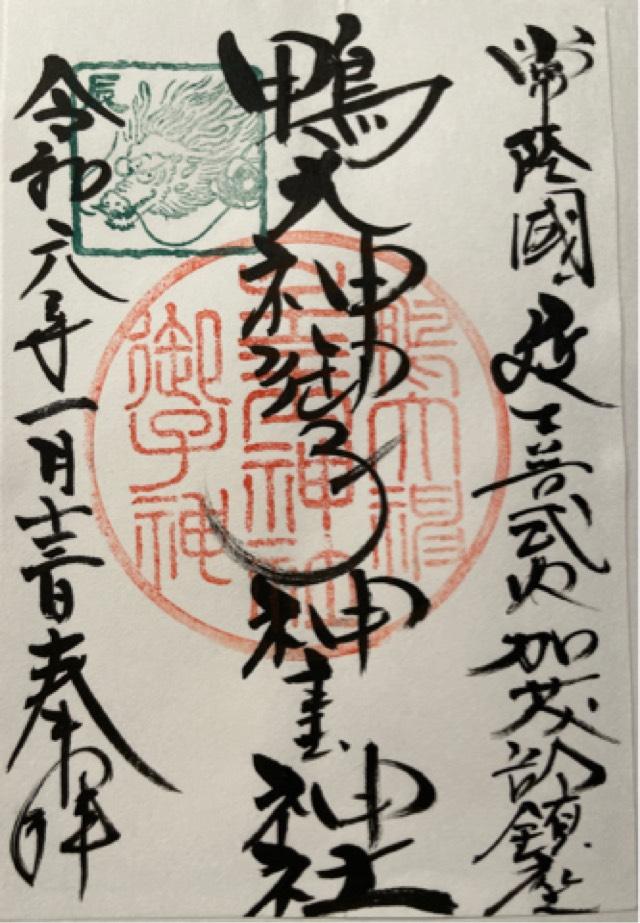 常陸國延喜式内加茂部鎮座
鴨大神御子神主玉神社
令和六年一月十三日奉拝
鴨大神
御子神
主玉神社
辰